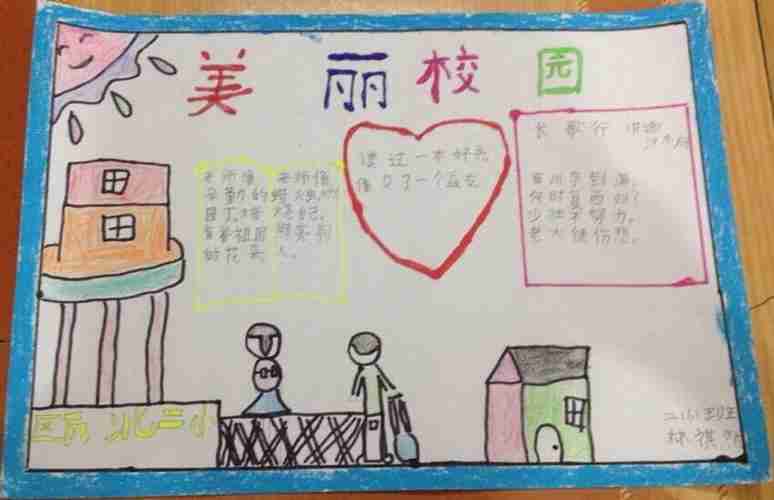 美丽校园
老师像
辛勤的
园丁培
育着祖国
的花朵
老师像
蜡烛燃
烧自己,
照亮别
人。
读过一本好书
像交了一个益友
长歌行
百川东到海,
何时复西归?
少壮不努力,
老大徒伤悲。
北二小
林祺